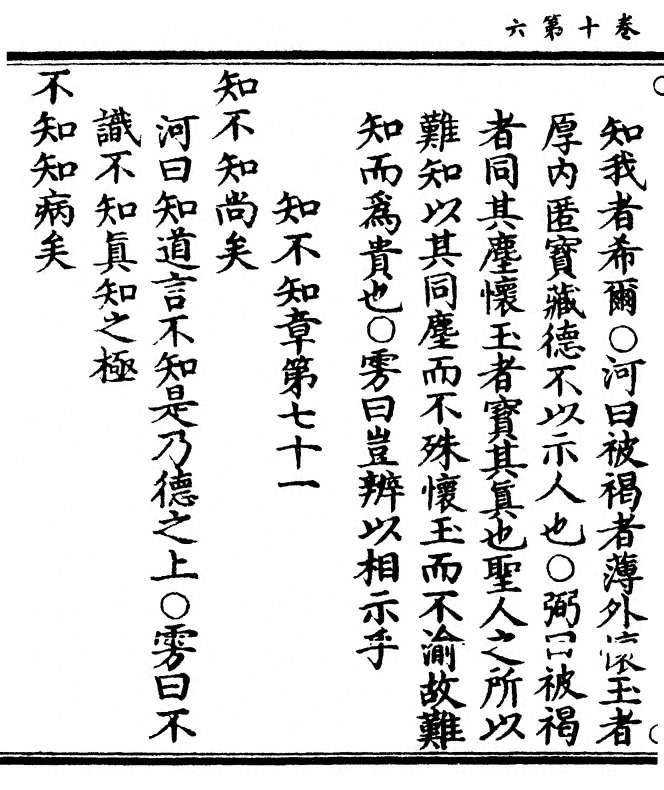 卷十第六
知我者希爾○河曰被褐者薄外懷玉者
厚內匿寶藏德不以示人也○弼曰被褐
者同其塵懷玉者寶其真也聖人之所以
難知以其同塵而不殊懷玉而不渝故難
知而爲貴也○雱曰豈辨以相示乎
知不知章第七十一
知不知尚矣
河曰知道言不知是乃德之上○雱曰不
識不知眞知之極
不知知病矣